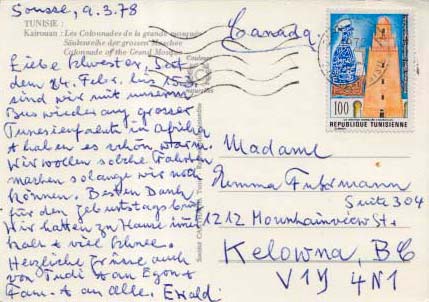 Sousse, 9.3.78
Canada
TUNISIE :
Kairouan : Les Colonnades de la grande mosquée
Säulenreihe der grossen Moschee
Colonnade of the Grand Mosque
Liebe Schwester, Seit
dem 24. Febr. bis 15.3.
sind wir mit unserm
Bus wieder auf grosser
Tunesienfahrt in Afrika
+ haben es schön warm.
Wir wollen solche Fahrten
machen solange wir noch
können. Besten Dank
für den Geburtstagsbrief
Wir hatten zu Hause immer
kalt + viel Schnee.
Herzliche Grüsse auch
von Trudi + an Egon +
Fam. + an alle. Ewald.
100
REPUBLIQUE TUNISIENNE
Madame
Suite 304
1212 Mounhainview St.
Kelowna, BC
V1Y 4N1